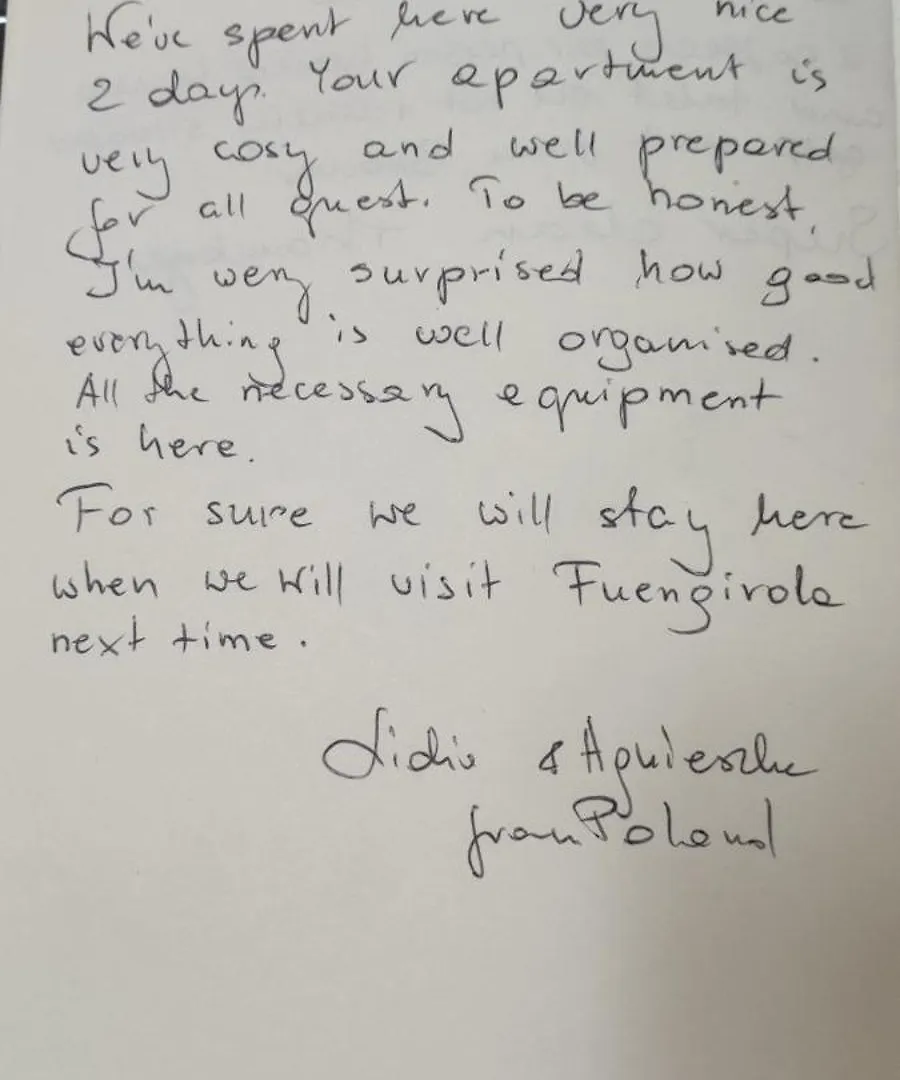 We've spent here very nice
2 days. Your apartment is
very cosy and well prepared
for all quest. To be honest,
I'm wery surprised how good
everything is well organised.
All the necessary equipment
is here.
For sure we will stay here
when we will visit Fuengirola
next time.
Lidia & Agnieszka
from Poland